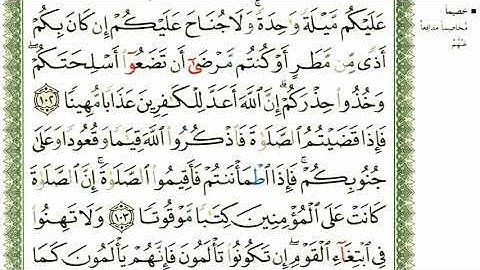 عَلَيْكُم مَّيْلَةً وَٰحِدَةً ۚ وَلَا جُنَاحَ عَلَيْكُمْ إِن كَانَ بِكُمْ
أَذًى مِّن مَّطَرٍ أَوْ كُنتُم مَّرْضَىٰٓ أَن تَضَعُوٓا۟ أَسْلِحَتَكُمْ ۖ
وَخُذُوا۟ حِذْرَكُمْ ۗ إِنَّ ٱللَّهَ أَعَدَّ لِلْكَٰفِرِينَ عَذَابًا مُّهِينًا ١٠٢
فَإِذَا قَضَيْتُمُ ٱلصَّلَوٰةَ فَٱذْكُرُوا۟ ٱللَّهَ قِيَٰمًا وَقُعُودًا وَعَلَىٰ
جُنُوبِكُمْ ۚ فَإِذَا ٱطْمَأْنَنتُمْ فَأَقِيمُوا۟ ٱلصَّلَوٰةَ ۚ إِنَّ ٱلصَّلَوٰةَ
كَانَتْ عَلَى ٱلْمُؤْمِنِينَ كِتَٰبًا مَّوْقُوتًا ١٠٣ وَلَا تَهِنُوا۟
فِى ٱبْتِغَآءِ ٱلْقَوْمِ ۖ إِن تَكُونُوا۟ تَأْلَمُونَ فَإِنَّهُمْ يَأْلَمُونَ كَمَا
▪ خصيماً
مُخاصِماً مُدافِعاً
عَنْهُم